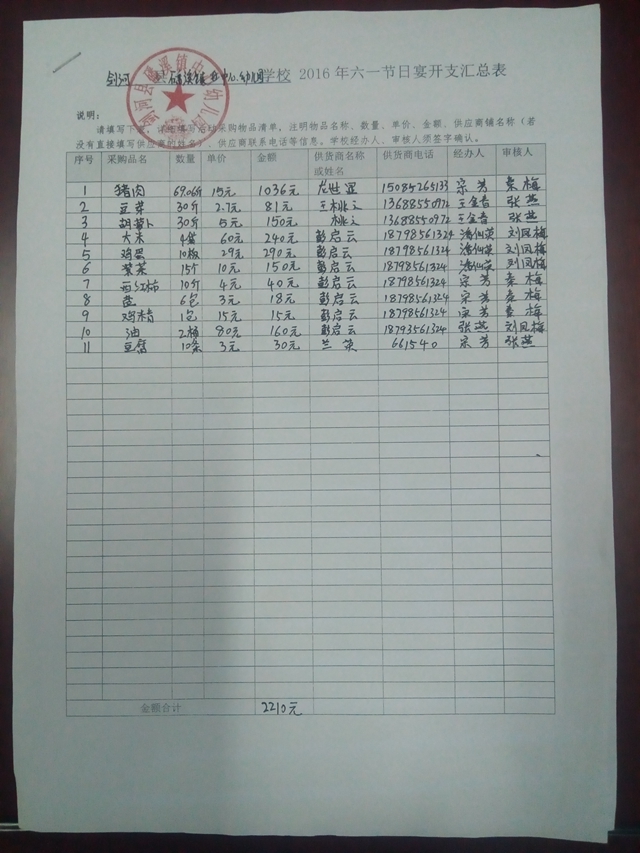 剑河县磻溪镇中心幼儿园学校 2016年六一节日宴开支汇总表
说明：
请填写下表，详细填写活动采购物品清单，注明物品名称、数量、单价、金额、供应商铺名称（若
没有直接填写供应商的姓名）、供应商联系电话等信息。学校经办人、审核人须签字确认。
序号 采购品名 数量 单价 金额 供货商名称或姓名 供货商电话 经办人 审核人
1 猪肉 69.06斤 15元 1036元 15084265133 宗芳 秦梅
2 豆芽 30斤 2.7元 81元 13688550972 王金香 张燕
3 胡萝卜 30斤 5元 150元 13688550972 王金香 张燕
4 大米 4盆 60元 240元 彭启云 18798561324 潘仙荣 刘凤梅
5 鸡蛋 10板 29元 290元 彭启云 18798561324 潘仙荣 刘凤梅
6 紫菜 15个 10元 150元 彭启云 18798561324 潘仙荣 刘凤梅
7 西红柿 10斤 4元 40元 彭启云 18798561324 宗芳 秦梅
8 盐 6包 3元 18元 彭启云 18798561324 宗芳 秦梅
9 鸡精 1包 15元 15元 彭启云 18798561324 宗芳 秦梅
10 油 2桶 80元 160元 彭启云 18793561324 张燕 刘凤梅
11 豆腐 10条 3元 30元 兰英 661540 宗芳 张燕
金额合计 2210元